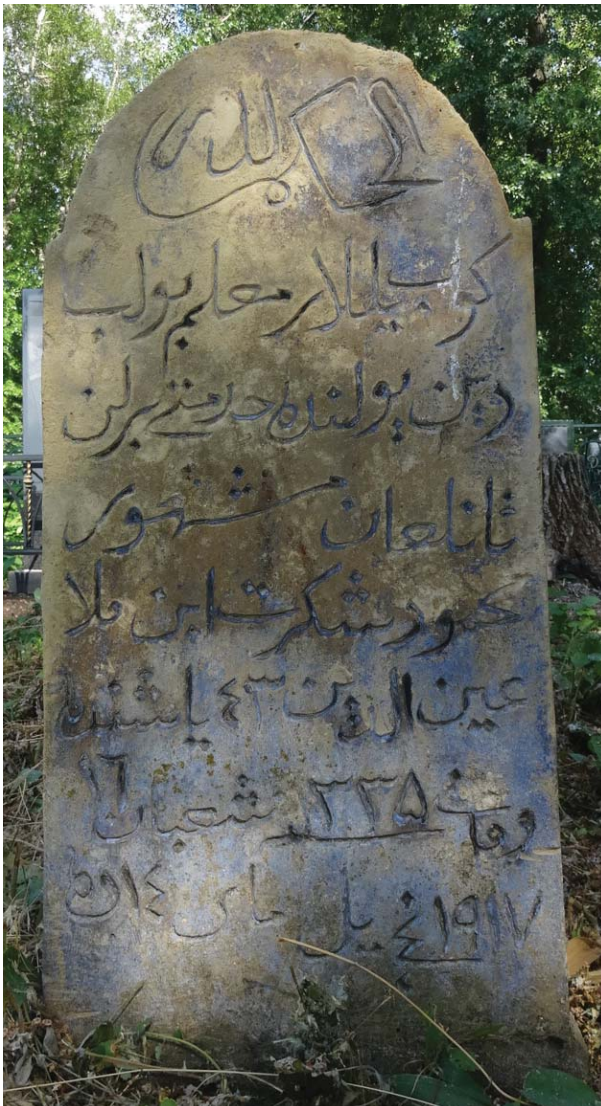 الحكم لله
كوب ييللار معلم بولب
دين يولنده خدمتى برلن
تانلعان مشهور
شكرت ابن ملا
عين الدين ٤٣ ياشنده
وفات ١٣٣٥ شعبان ١٦
١٩١٧ نچی يل مای ١٤